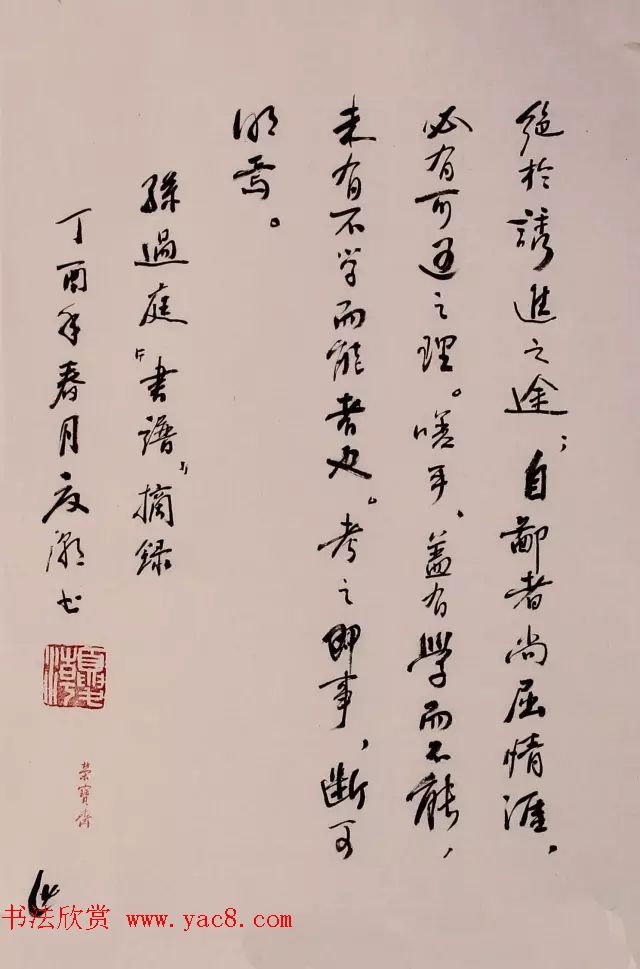 絕於誘進之途；自鄙者尚屈情涯，
必有可通之理。嗟乎、蓋有學而不能，
未有不学而能者也。考之即事，断可
明焉。
孫過庭“書譜”摘録
丁酉年春月夏潮书
榮寶齋
书法欣赏 www.yac8.com